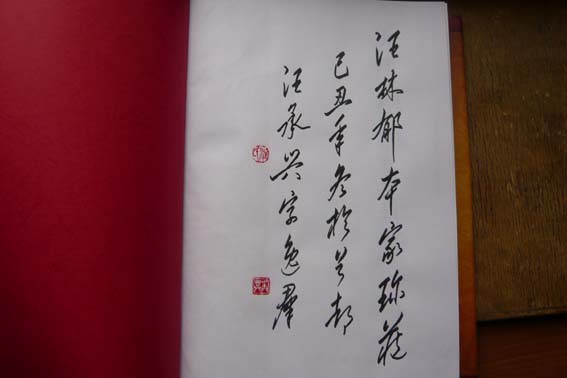 汪林郁本家珍藏
己丑年冬於都
汪承兴字逸羣